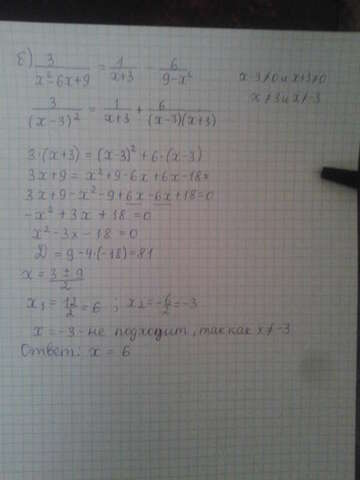 б) 3/(x²-6x+9) = 1/(x+3) - 6/(9-x²)    x-3≠0 и x+3≠0
x≠3 и x≠-3
3/(x-3)² = 1/(x+3) + 6/((x-3)(x+3))
3·(x+3)=(x-3)²+6·(x-3)
3x+9=x²+9-6x+6x-18=
3x+9-x²-9+6x-6x+18=0
-x²+3x+18=0
x²-3x-18=0
D=9-4·(-18)=81
x=(3±9)/2
x₁=12/2=6 ; x₂=-6/2=-3
x=-3-не подходит, так как x≠-3
Ответ: x=6